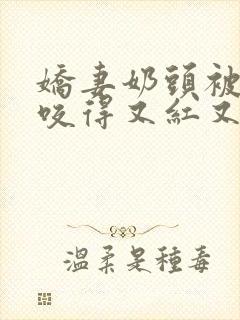 嬌妻奶頭被
咬得又紅又
溫柔是種毒